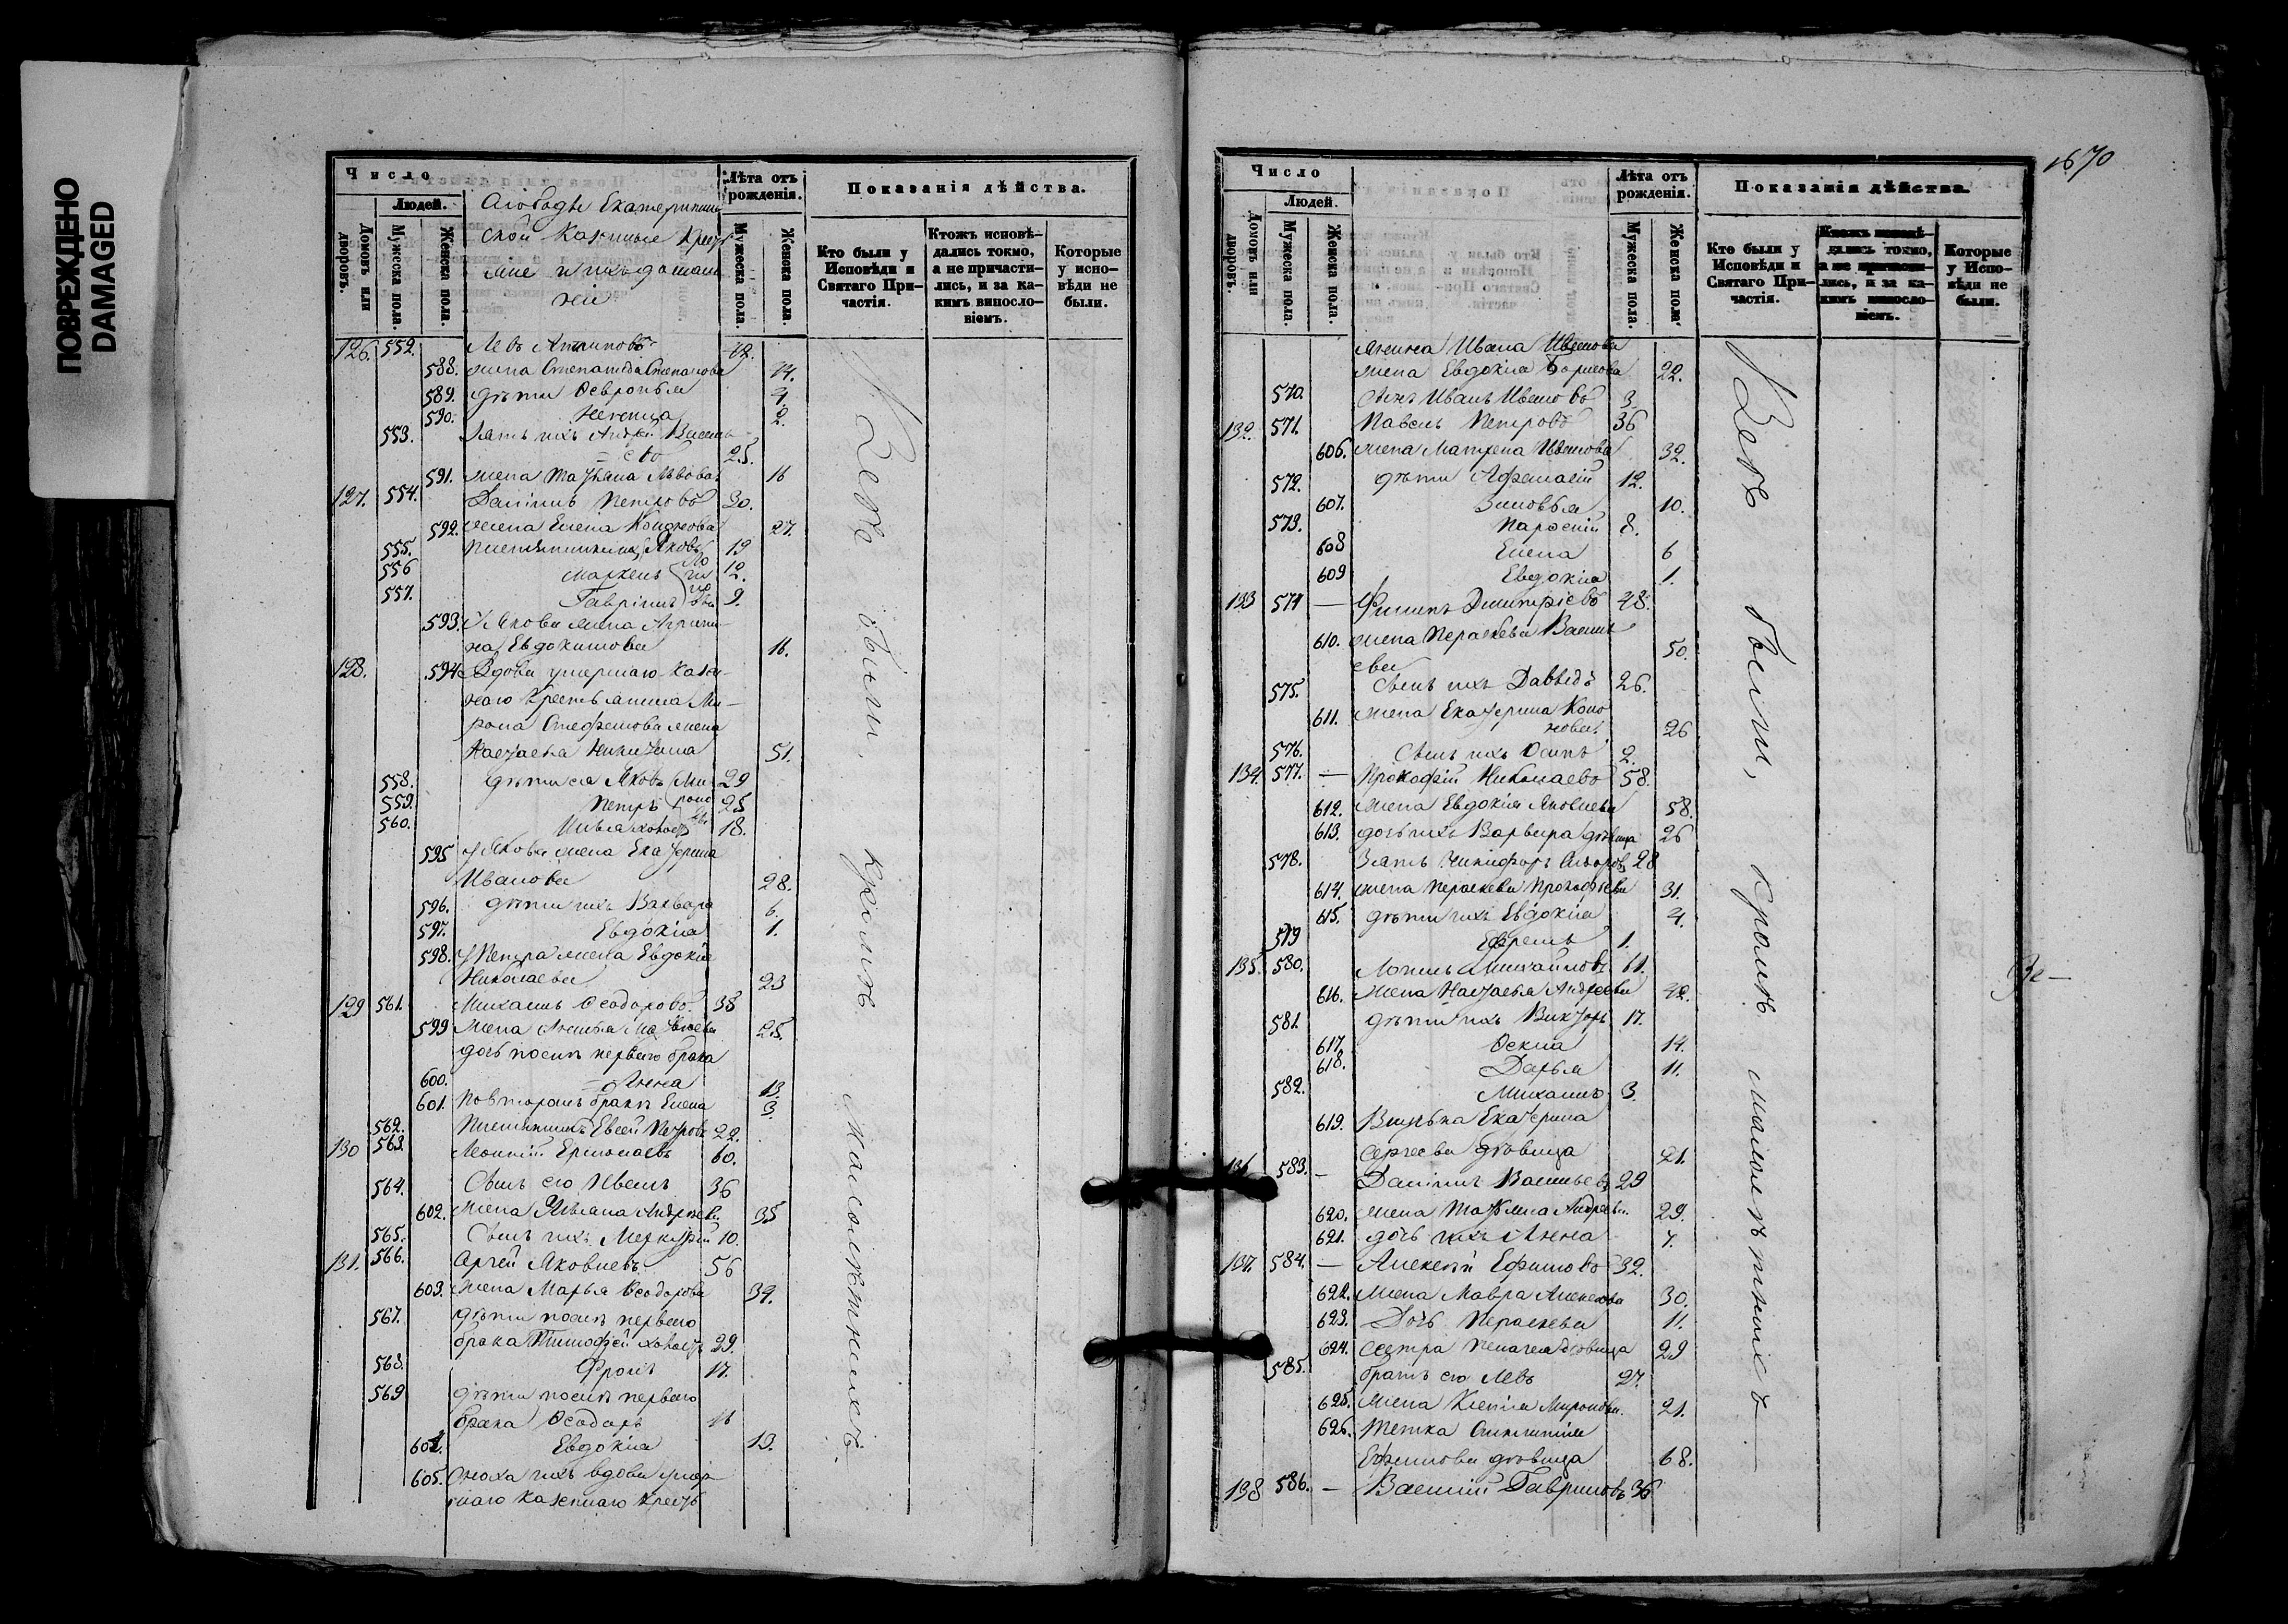 ПОВРЕЖДЕНО
DAMAGED
Число
Людей.
Домовъ или дворовъ.
Мужеска пола.
Женска пола.
Слободы Екатеринин-
ской казенные крест-
яне и ихъ домаш-
Лѣта отъ рожденія.
Мужеска пола.
Женска пола.
Показанія дѣйства.
Кто были у Исповѣди и Святаго Причастія.
Ктожъ исповѣдались токмо, а не причастились, и за какимъ винословіемъ.
Которые у исповѣди не были.
126. 552. Левъ 42.
588. жена Степанида Степанова
589. дѣти Февронья 4.
590. 2.
553. Зять ихъ Андрей Василь-
евъ 25.
591. жена Татьяна Львова 16
127. 554. Даніилъ Петровъ 30.
592. жена Елена 27.
555. племянники ихъ Яковъ 19
556 12.
557. Гавріилъ 9.
593. У Якова жена Агрипи-
на Евдокимова 16.
128. 594 Вдова умершаго казен-
наго крестьянина Ми-
рона Стефанова жена
Настасья Никитина 51.
558. дѣти ея Яковъ 29
559. Петръ 25
560. Илья холостъ 18.
595 У Якова жена Екатерина
Иванова 28.
596. дѣти ихъ Варвара 6.
597. Евдокія 1.
598. У Петра жена Евдокія
Николаева 23
129 561. Михаилъ Ѳеодоровъ 38
599 жена 25.
дочь по немъ перваго брака
600. Анна 13.
601. По второмъ бракѣ Елена 3.
562. Племянникъ Евсей Петровъ 22.
130 563. Леонтій Ермолаевъ 60.
564. Сынъ его Иванъ 36
602. жена Ульяна Андреева 35
565. Сынъ ихъ Меркурій 10.
131. 566. Сергей Яковлевъ 56
603. жена Марья Ѳеодорова 39.
567. дѣти по немъ перваго
брака Тимофей холостъ 29.
568. Фролъ 17.
569 дѣти по ней перваго
брака Ѳеодоръ 16
604. Евдокія 13.
605. Сноха ихъ вдова умер-
шаго казеннаго крест
Всѣ были, кромѣ малолѣтнихъ
1670
Число
Людей.
Домовъ или дворовъ.
Мужеска пола.
Женска пола.
Лѣта отъ рожденія.
Мужеска пола.
Женска пола.
Показанія дѣйства.
Кто были у Исповѣди и Святаго Причастія.
Ктожъ исповѣдались токмо, а не причастились, и за какимъ винословіемъ.
Которые у Исповѣди не были.
янина Ивана Иванова
жена Евдокія Борисова 22.
570. Сынъ Иванъ Ивановъ 3.
132. 571. Павелъ Петровъ 36
606. жена Матрена Иванова 32.
572. дѣти Афанасій 12.
607. Зиновья 10.
573. Парфеній 8.
608 Елена 6
609 Евдокія 1.
133 574 — Филипъ Димитріевъ 48.
610. жена Параскева Василь
ева 50.
575. Сынъ ихъ Давыдъ 26.
611. жена Екатерина Коно
нова 26
576. Сынъ ихъ Осипъ 2.
134. 577. — Прокофій Николаевъ 58.
612. жена Евдокія Яковлева 58.
613. дочь ихъ Варвара дѣвица 26
578. Зять Никифоръ 28
614. жена Параскева Прокофьева 31.
615. дѣти ихъ Евдокія 4.
579 Ефремъ 1.
135. 580. Михайловъ
616. жена Настасья Андреева 42.
581. дѣти ихъ Викторъ 17.
617. Ѳекла 14.
618. Дарья 11.
582. Михаилъ 3.
619. Екатерина
Сергеева дѣвица 21.
136 583. — Даніилъ Васильевъ 29
620. жена Татьяна Андреева 29.
621. дочь ихъ Анна
137. 584. — Алексѣй Ефимовъ 32.
622. жена Мавра 30.
623. Дочь Параскева 11.
624. Сестра Пелагея дѣвица 29
585. братъ его Левъ 27.
625. жена Ксенія Миронова. 21.
626. Тетка
Ефимова дѣвица 68.
138 586. — Василій Гавриловъ 36
Всѣ были, кромѣ малолѣтнихъ